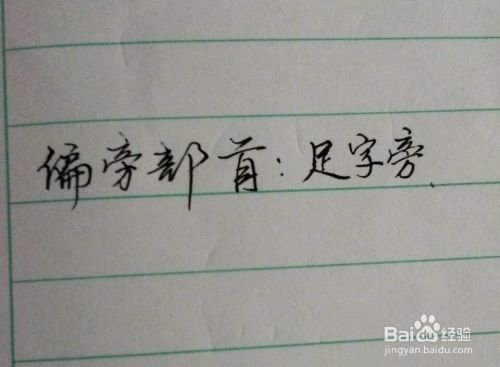 偏旁部首：足字旁
Baidu经验
jingyan.baidu.com